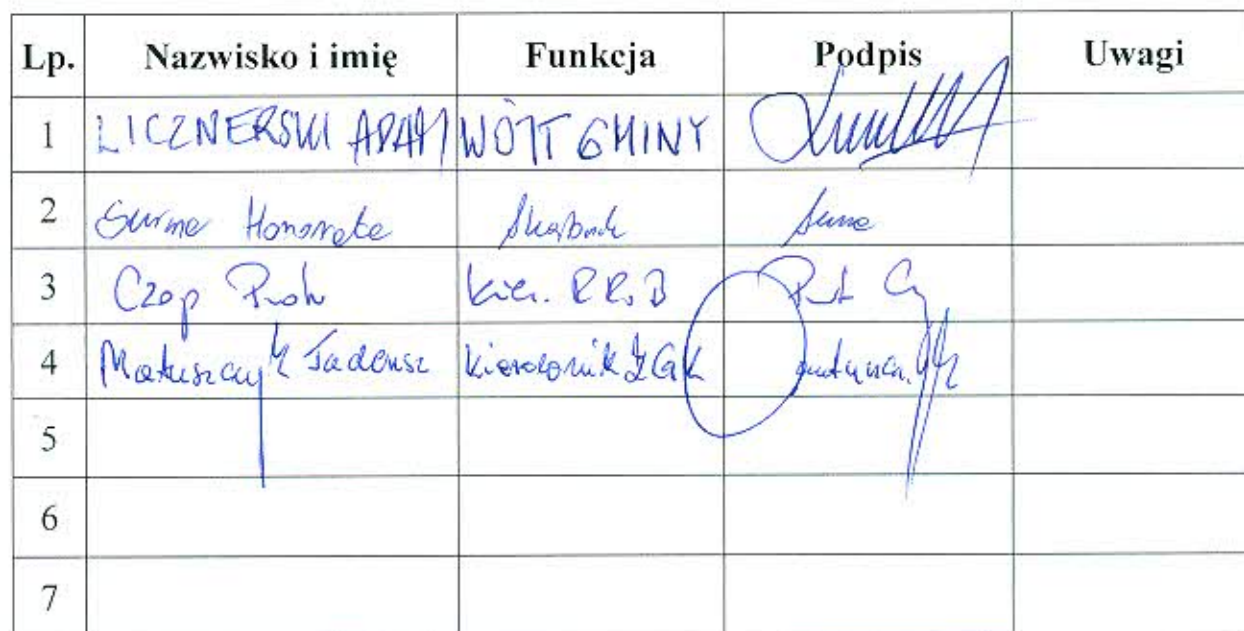 Lp. Nazwisko i imię Funkcja Podpis Uwagi
1 LICZNERSKI ADAM WÓJT GMINY
2 Surma Honorata Skarbnik
3 Czop Piotr kier. RRiB
4 Matuszczyk Tadeusz kierownik ZGK
5
6
7